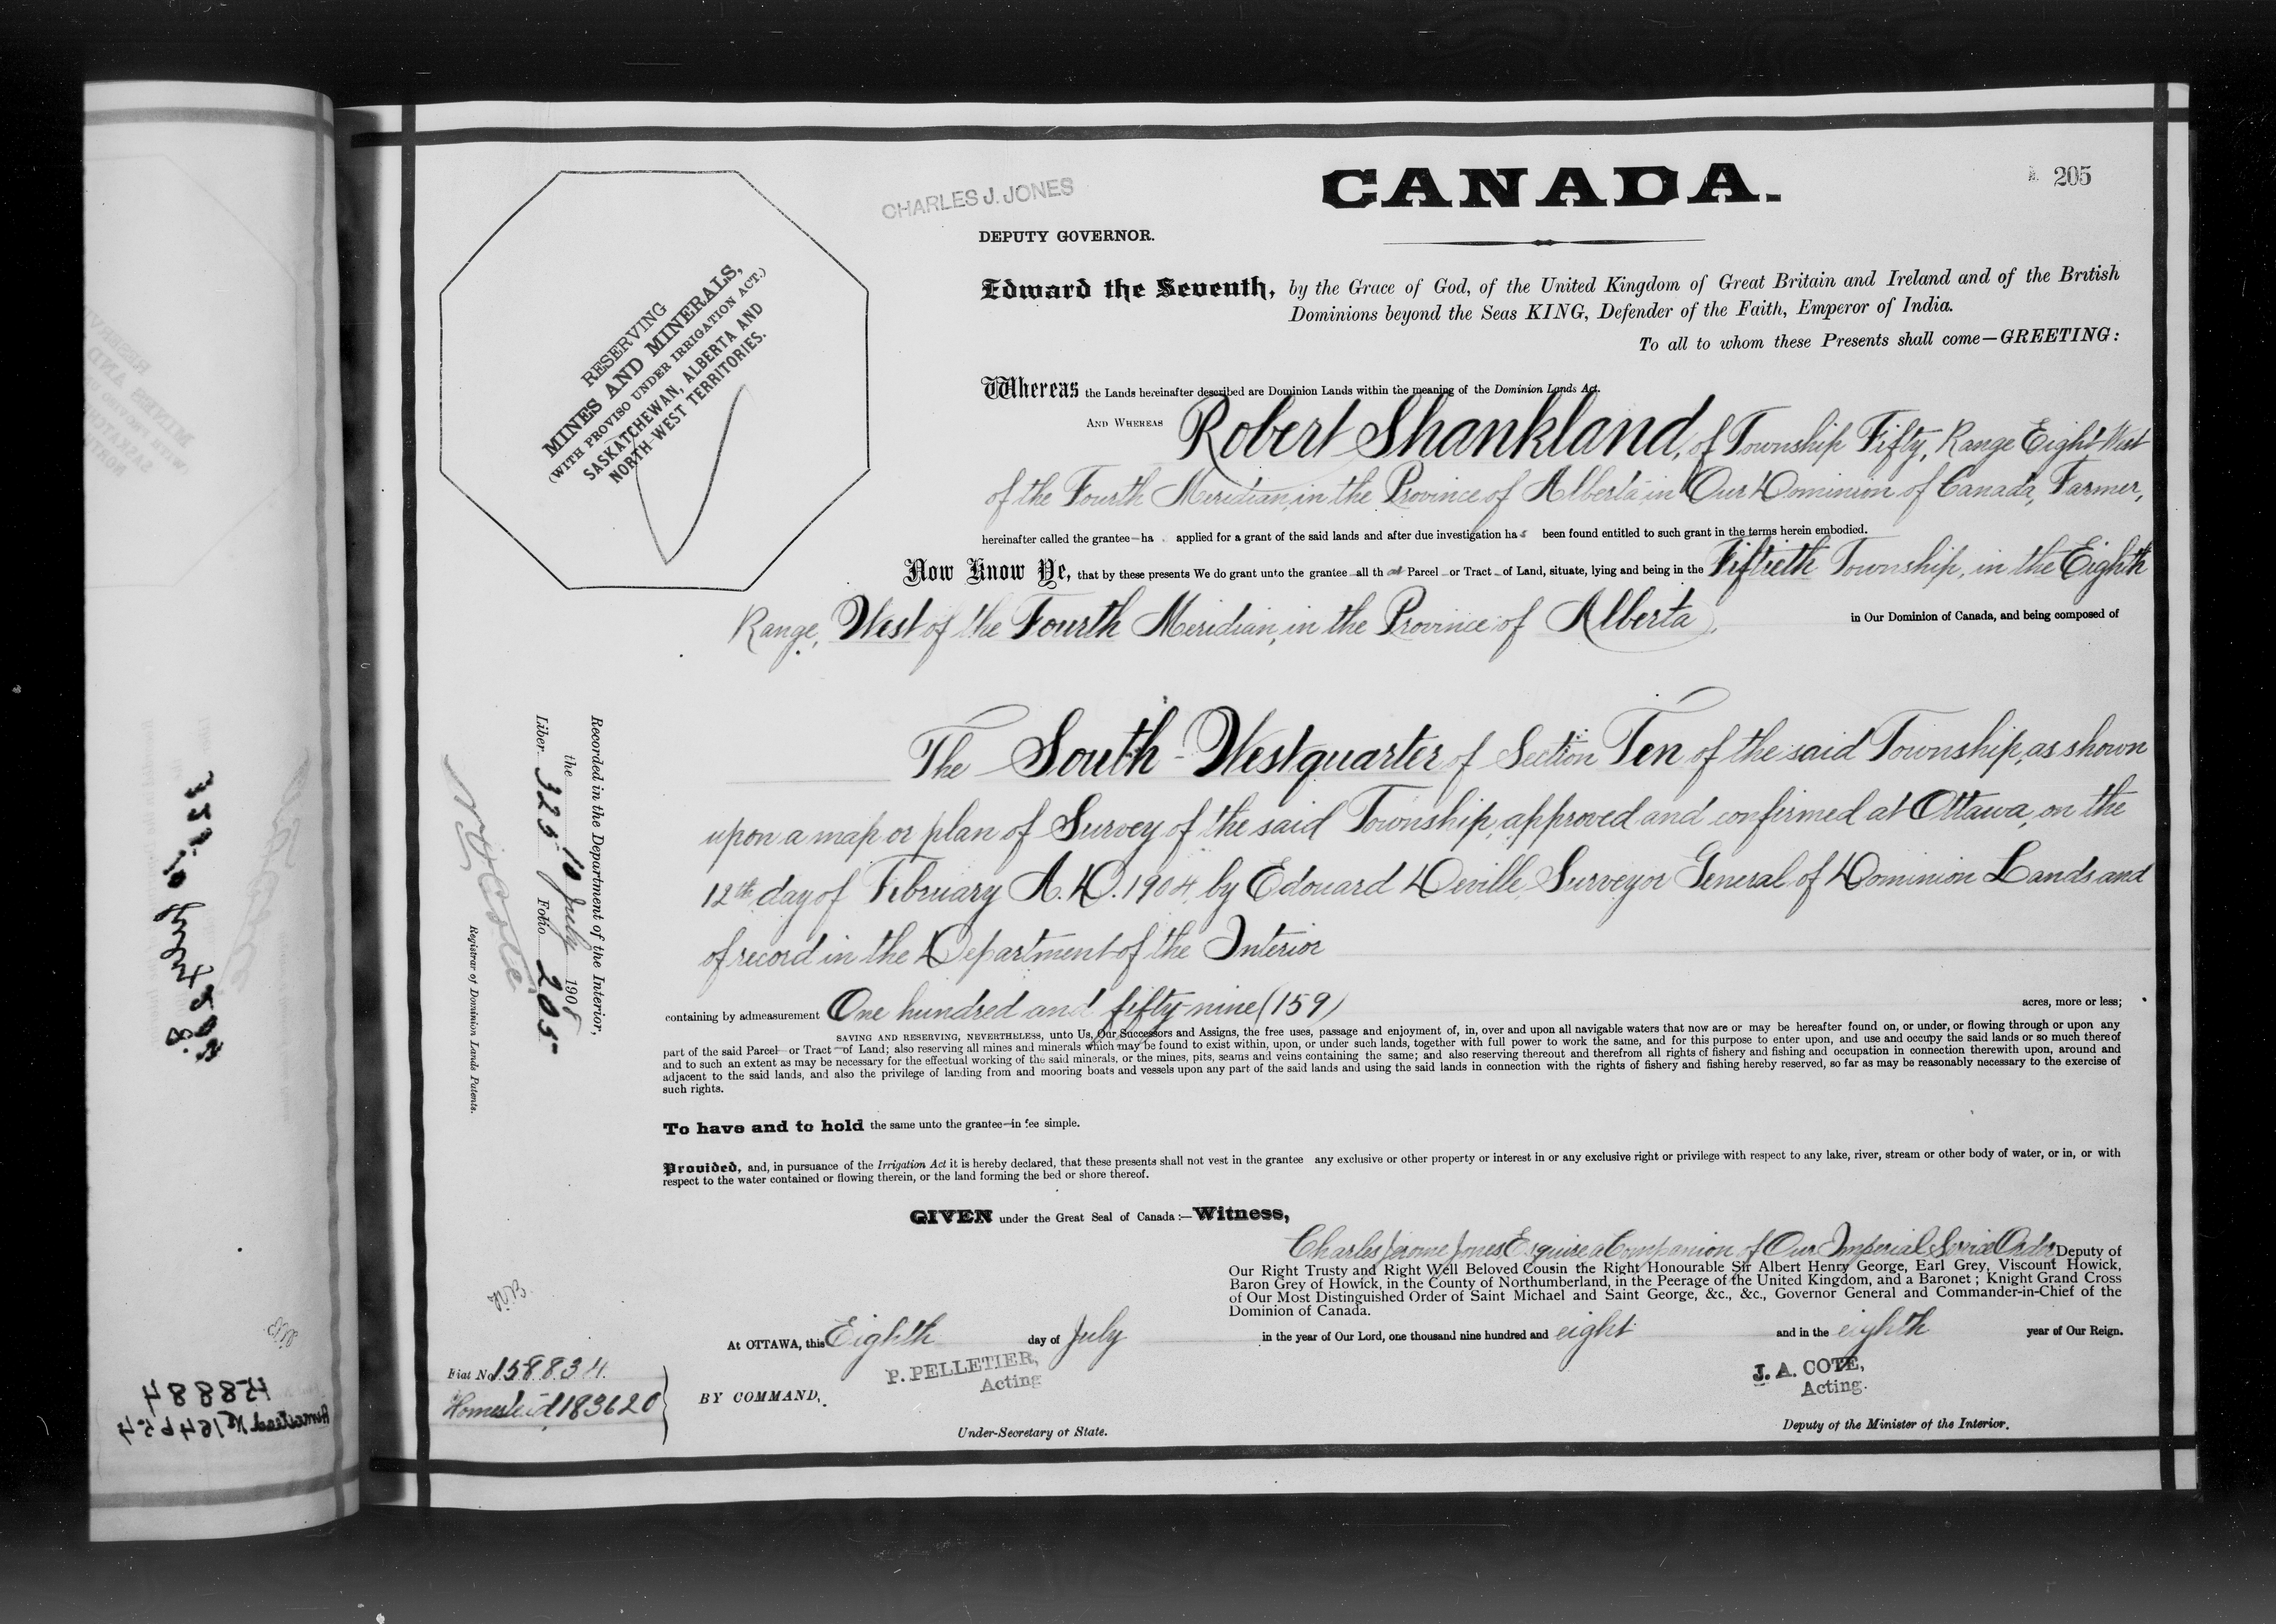 CANADA.
205
CHARLES J. JONES
DEPUTY GOVERNOR.
RESERVING
MINES AND MINERALS,
(WITH PROVISO UNDER IRRIGATION ACT.)
SASKATCHEWAN, ALBERTA AND
NORTH-WEST TERRITORIES.
Edward the Seventh, by the Grace of God, of the United Kingdom of Great Britain and Ireland and of the British
Dominions beyond the Seas KING, Defender of the Faith, Emperor of India.
To all to whom these Presents shall come—GREETING:
Whereas the Lands hereinafter described are Dominion Lands within the meaning of the Dominion Lands Act.
AND WHEREAS Robert Shankland, of Township Fifty, Range Eight West
of the Fourth Meridian, in the Province of Alberta in Our Dominion of Canada, Farmer,
hereinafter called the grantee—ha applied for a grant of the said lands and after due investigation has been found entitled to such grant in the terms herein embodied.
Now Know Ye, that by these presents We do grant unto the grantee all that Parcel or Tract of Land, situate, lying and being in the Fiftieth Township, in the Eighth
Range, West of the Fourth Meridian, in the Province of Alberta, in Our Dominion of Canada, and being composed of
The South-West quarter of Section Ten of the said Township, as shown
upon a map or plan of Survey of the said Township, approved and confirmed at Ottawa, on the
12th day of February A.D. 1904, by Edouard Deville, Surveyor General of Dominion Lands and
of record in the Department of the Interior
containing by admeasurement One hundred and fifty-nine (159) acres, more or less;
SAVING AND RESERVING, NEVERTHELESS, unto Us, Our Successors and Assigns, the free uses, passage and enjoyment of, in, over and upon all navigable waters that now are or may be hereafter found on, or under, or flowing through or upon any
part of the said Parcel or Tract of Land; also reserving all mines and minerals which may be found to exist within, upon, or under such lands, together with full power to work the same, and for this purpose to enter upon, and use and occupy the said lands or so much thereof
and to such an extent as may be necessary for the effectual working of the said minerals, or the mines, pits, seams and veins containing the same; and also reserving thereout and therefrom all rights of fishery and fishing and occupation in connection therewith upon, around and
adjacent to the said lands, and also the privilege of landing from and mooring boats and vessels upon any part of the said lands and using the said lands in connection with the rights of fishery and fishing hereby reserved, so far as may be reasonably necessary to the exercise of
such rights.
To have and to hold the same unto the grantee—in fee simple.
Provided, and, in pursuance of the Irrigation Act it is hereby declared, that these presents shall not vest in the grantee any exclusive or other property or interest in or any exclusive right or privilege with respect to any lake, river, stream or other body of water, or in, or with
respect to the water contained or flowing therein, or the land forming the bed or shore thereof.
GIVEN under the Great Seal of Canada:—Witness,
Charles Jerome Jones Esquire a Companion of Our Imperial Service Order Deputy of
Our Right Trusty and Right Well Beloved Cousin the Right Honourable Sir Albert Henry George, Earl Grey, Viscount Howick,
Baron Grey of Howick, in the County of Northumberland, in the Peerage of the United Kingdom, and a Baronet; Knight Grand Cross
of Our Most Distinguished Order of Saint Michael and Saint George, &c., &c., Governor General and Commander-in-Chief of the
Dominion of Canada.
At OTTAWA, this Eighth day of July in the year of Our Lord, one thousand nine hundred and eight and in the eighth year of Our Reign.
P. PELLETIER,
Acting
BY COMMAND,
Under-Secretary of State.
J. A. COTE,
Acting.
Deputy of the Minister of the Interior.
Recorded in the Department of the Interior,
the 10 July 1908
Liber 325 Folio 205
Registrar of Dominion Lands Patents.
Fiat No 158834.
Homestead 183620